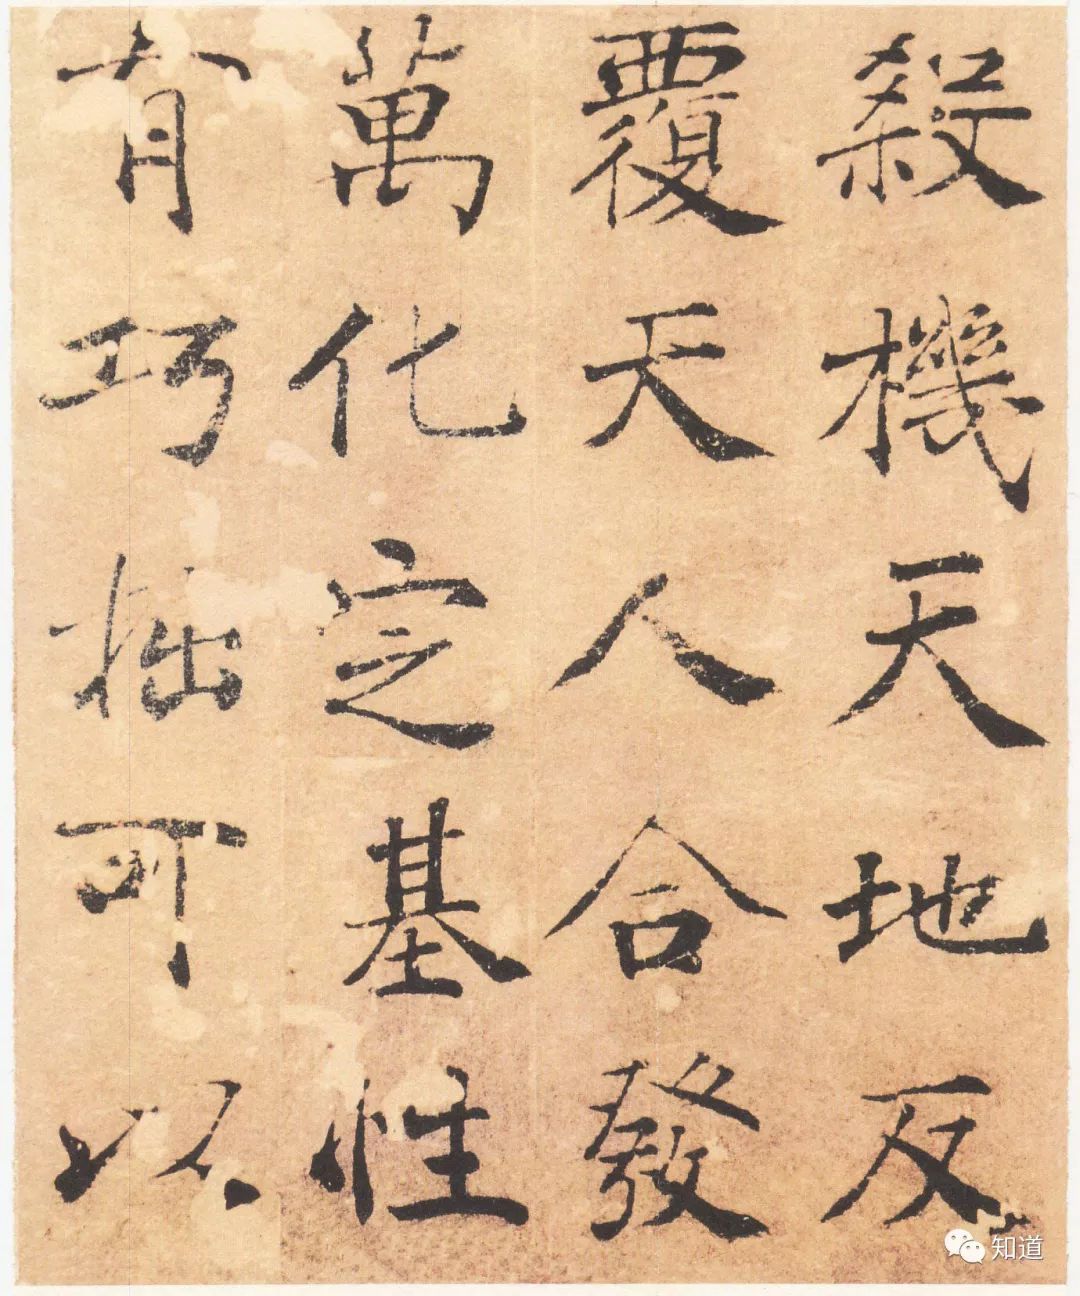 殺機天地反
覆天人合發
萬化定基性
有巧拙可以
知道